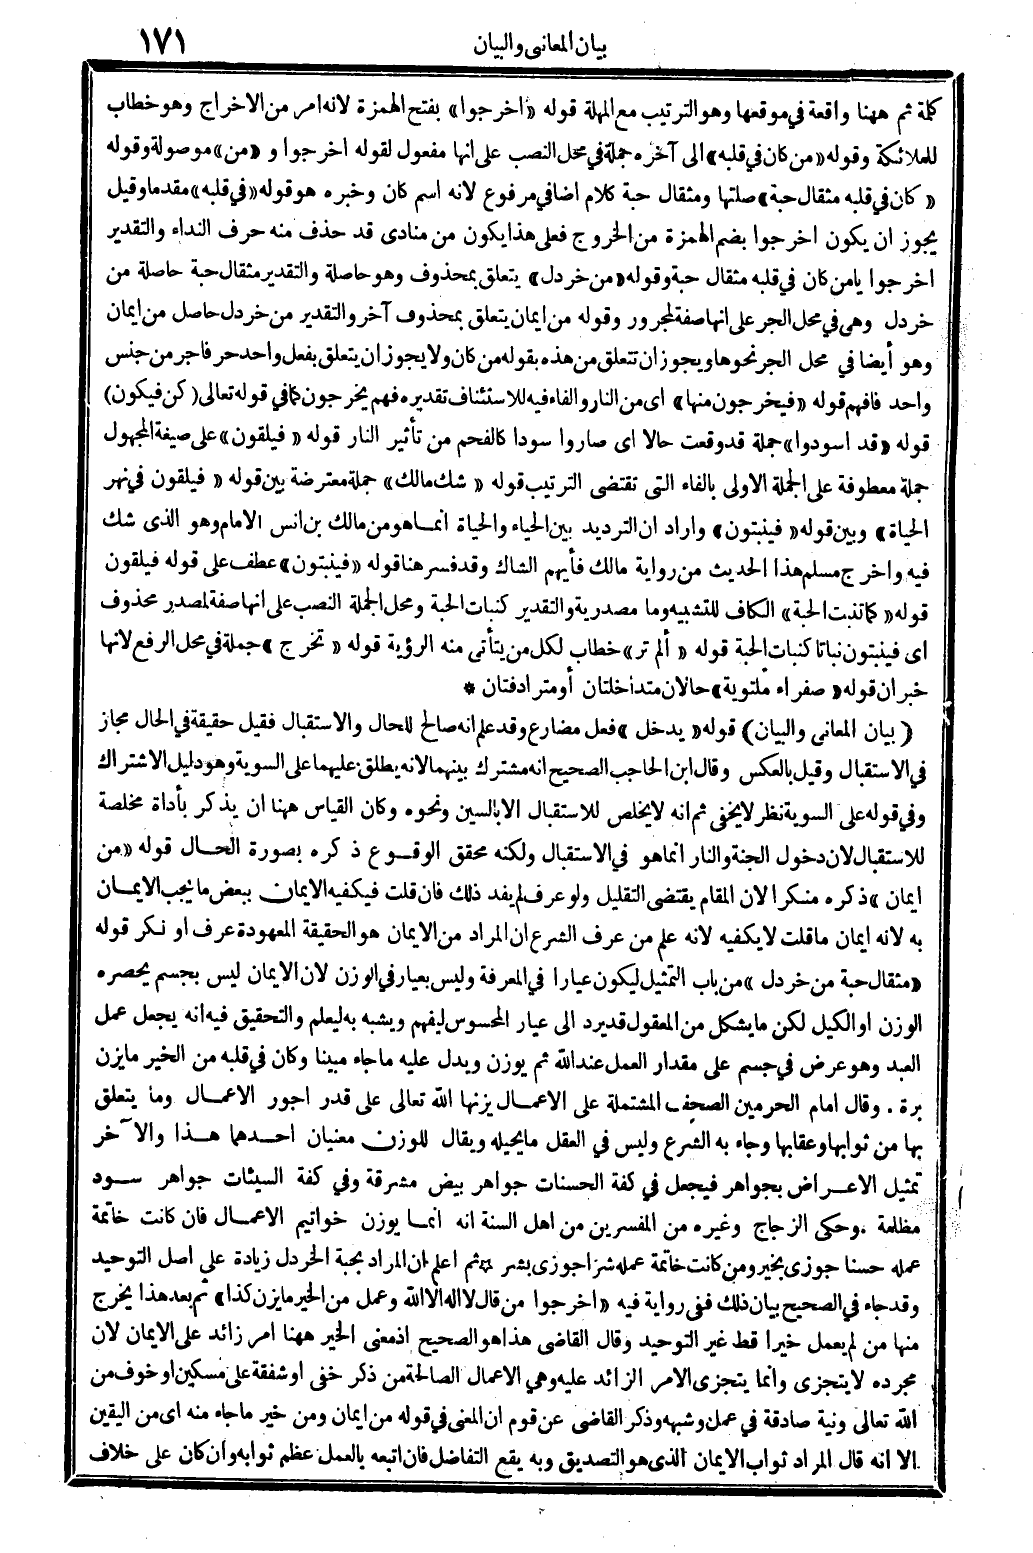 بيان المعانى والبيان
١٧١
كلمة ثم ههنا واقعة في موقعها وهو الترتيب مع المهلة قوله «اخرجوا» بفتح الهمزة لانه امر من الاخراج وهو خطاب
للملائكة وقوله «من كان في قلبه» الى آخره جملة في محل النصب على انها مفعول لقوله اخرجوا و «من» موصولة وقوله
«كان في قلبه مثقال حبة» صلتها ومثقال حبة كلام اضافي مرفوع لانه اسم كان وخبره هو قوله «في قلبه» مقدما وقيل
يجوز ان يكون اخرجوا بضم الهمزة من الخروج فعلى هذا يكون من منادى قد حذف منه حرف النداء والتقدير
اخرجوا يا من كان في قلبه مثقال حبة وقوله «من خردل» يتعلق بمحذوف وهو حاصلة والتقدير مثقال حبة حاصلة من
خردل وهى في محل الجر على انها صفة لمجرور وقوله من ايمان يتعلق بمحذوف آخر والتقدير من خردل حاصل من ايمان
وهو أيضا في محل الجر نحوها ويجوز ان تتعلق من هذه بقوله من كان ولا يجوز ان يتعلق بفعل واحد حر فاجر من جنس
واحد فافهم قوله «فيخرجون منها» اى من النار والفاء فيه للاستئناف تقديره فهم يخرجون كما في قوله تعالى (كن فيكون)
قوله «قد اسودوا» جملة قد وقعت حالا اى صاروا سودا كالفحم من تأثير النار قوله «فيلقون» على صيغة المجهول
جملة معطوفة على الجملة الاولى بالفاء التى تقتضى الترتيب قوله «شك مالك» جملة معترضة بين قوله «فيلقون في نهر
الحياة» وبين قوله «فينبتون» واراد ان الترديد بين الحياء والحياة انما هو من مالك بن انس الامام وهو الذى شك
فيه واخرج مسلم هذا الحديث من رواية مالك فأبهم الشاك وقد فسر هنا قوله «فينبتون» عطف على قوله فيلقون
قوله «كما تنبت الحبة» الكاف للتشبيه وما مصدرية والتقدير كنبات الحبة ومحل الجملة النصب على انها صفة لمصدر محذوف
اى فينبتون نباتا كنبات الحبة قوله «ألم تر» خطاب لكل من يتأتى منه الرؤية قوله «تخرج» جملة في محل الرفع لانها
خبر ان قوله «صفراء ملتوية» حالان متداخلتان أو مترادفتان *
(بيان المعانى والبيان) قوله «يدخل» فعل مضارع وقد علم انه صالح للحال والاستقبال فقيل حقيقة في الحال مجاز
في الاستقبال وقيل بالعكس وقال ابن الحاجب الصحيح انه مشترك بينهما لانه يطلق عليهما على السوية وهو دليل الاشتراك
وفي قوله على السوية نظر لا يخفى ثم انه لا يخلص للاستقبال الا بالسين ونحوه وكان القياس ههنا ان يذكر بأداة مخلصة
للاستقبال لان دخول الجنة والنار انما هو في الاستقبال ولكنه محقق الوقوع ذكره بصورة الحال قوله «من
ايمان» ذكره منكرا لان المقام يقتضى التقليل ولو عرف لم يفد ذلك فان قلت فيكفيه الايمان ببعض ما يجب الايمان
به لانه ايمان ما قلت لا يكفيه لانه علم من عرف الشرع ان المراد من الايمان هو الحقيقة المعهودة عرف او نكر قوله
«مثقال حبة من خردل» من باب التمثيل ليكون عيارا في المعرفة وليس بعيار في الوزن لان الايمان ليس بجسم يحصره
الوزن او الكيل لكن ما يشكل من المعقول قد يرد الى عيار المحسوس ليفهم ويشبه به ليعلم والتحقيق فيه انه يجعل عمل
العبد وهو عرض في جسم على مقدار العمل عند الله ثم يوزن ويدل عليه ما جاء مبينا وكان في قلبه من الخير ما يزن
برة . وقال امام الحرمين الصحف المشتملة على الاعمال يزنها الله تعالى على قدر اجور الاعمال وما يتعلق
بها من ثوابها وعقابها وجاء به الشرع وليس في العقل ما يحيله ويقال للوزن معنيان احدهما هذا والآخر
تمثيل الاعراض بجواهر فيجعل في كفة الحسنات جواهر بيض مشرقة وفي كفة السيئات جواهر سود
مظلمة . وحكى الزجاج وغيره من المفسرين من اهل السنة انه انما يوزن خواتيم الاعمال فان كانت خاتمة
عمله حسنا جوزى بخير ومن كانت خاتمة عمله شرا جوزى بشر * ثم اعلم ان المراد بحبة الخردل زيادة على اصل التوحيد
وقد جاء في الصحيح بيان ذلك ففى رواية فيه «اخرجوا من قال لا اله الا الله وعمل من الخير ما يزن كذا» ثم بعد هذا يخرج
منها من لم يعمل خيرا قط غير التوحيد وقال القاضى هذا هو الصحيح اذ معنى الخير ههنا امر زائد على الايمان لان
مجرده لا يتجزى وانما يتجزى الامر الزائد عليه وهي الاعمال الصالحة من ذكر خفى او شفقة على مسكين او خوف من
الله تعالى ونية صادقة في عمل وشبهه وذكر القاضى عن قوم ان المعنى في قوله من ايمان ومن خير ما جاء منه اى من اليقين
الا انه قال المراد ثواب الايمان الذى هو التصديق وبه يقع التفاضل فان اتبعه بالعمل عظم ثوابه وان كان على خلاف